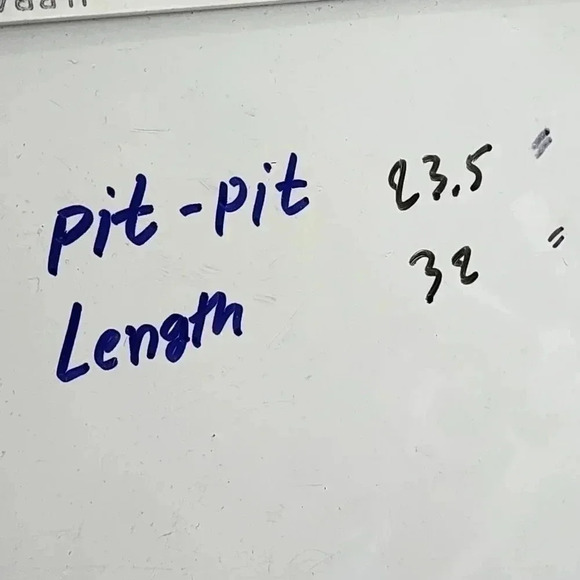 pit-pit 23.5 "
Length 32 "